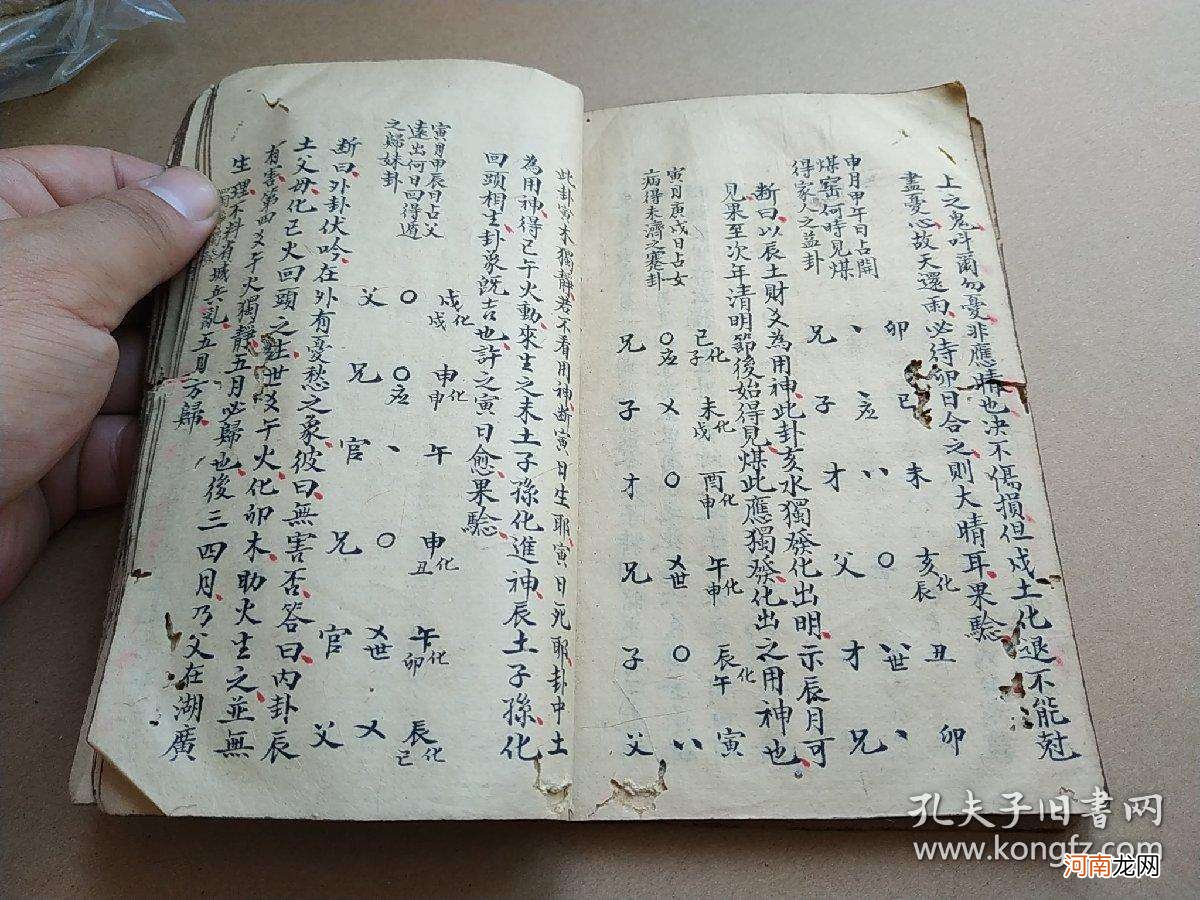 上之鬼吁爾勿憂非應晴也決不傷損但戌土化退不能尅
盡憂心故天還雨必待卯日合之則大晴耳果驗
申月甲午日占開
煤窑何時見煤
得家人之益卦
卯 、 兄
巳 、應 子
未 〃 才
亥化辰 〇 父
丑 〃世 才
卯 、 兄
斷曰以辰土財爻為用神此卦亥水獨發化出明示辰月可
見果至次年清明節後始得見煤此應獨發化出之用神也
寅月庚戌日占女
病得未濟之蹇卦
巳化子 〇應 兄
未化戌 乂 子
酉化申 〇 才
午化申 乂世 兄
辰化午 〇 子
寅 〃 父
此卦寅木獨靜若不看用神斷寅日生耶寅日死耶卦中土
為用神得巳午火動來生之未土子孫化進神辰土子孫化
回頭相生卦象既吉也許之寅日愈果驗
寅月甲辰日占父
遠出何日回得遯
之歸妹卦
戌化戌 〇 父
申化申 〇應 兄
午 、 官
申化丑 〇 兄
午化卯 乂世 官
辰化巳 乂 父
斷曰外卦伏吟在外有憂愁之象彼曰無害否答曰內卦辰
土父母化巳火回頭之生世爻午火化卯木助火生之並無
有害第四爻午火獨靜五月必歸也後三四月乃父在湖廣
生理不料有城兵亂五月方歸
孔夫子旧书网
www.kongfz.com
河南龙网